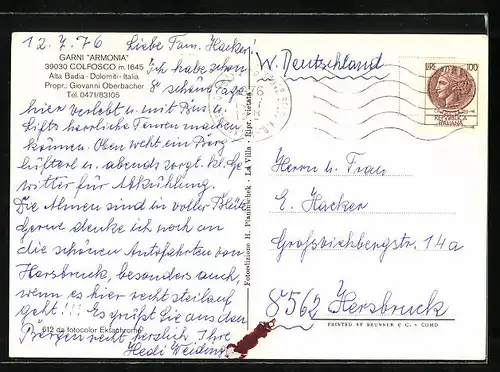 12.7.76 Liebe Fam. Hacker!
GARNI "ARMONIA"
39030 COLFOSCO m. 1645
Alta Badia - Dolomiti - Italia
Propr.: Giovanni Oberbacher
Tel. 0471/83105
Ich habe schon
8 schöne Tage
hier verlebt u. mit Bus u.
Lifts herrliche Touren machen
können. Oben weht ein Berg
lüfterl u. abends sorgt kl. Ge
witter für Abkühlung.
Die Almen sind in voller Blüte
Gerne denke ich noch an
die schönen Autofahrten von
Hersbruck, besonders auch,
wenn es hier recht steil auf
geht!!! Es grüßt Sie aus den
Bergen recht herzlich Ihre
612 da fotocolor Ektachrome
Hedi
Fotoedizione H. Planinschek - La Villa - Ripr. vietata
W. Deutschland
LIRE 100
REPVBBLICA
ITALIANA
Herrn u. Frau
E. Hacker
Großviehbergstr. 14a
8562 Hersbruck
PRINTED BY BRUNNER & C. - COMO